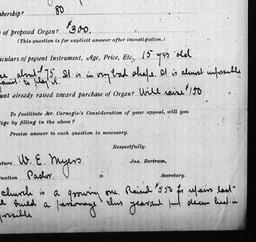 mbership? 80
e of proposed Organ? $300.
(This question is for explicit answer after investigation.)
rticulars of present Instrument, Age, Price, Etc., 15 yrs old
about 75. It is in very bad shape. It is almost impossible
to play it.
unt already raised toward purchase of Organ? Will raise 150
To facilitate Mr. Carnegie's Consideration of your appeal, will you
lige by filling in the above?
Precise answer to each question is necessary.
Respectfully,
ature, W. E. Myers Jas. Bertram,
nation Pastor. Secretary.
church is a growing one. Raised $550 for repairs last
build a parsonage this year and
possible